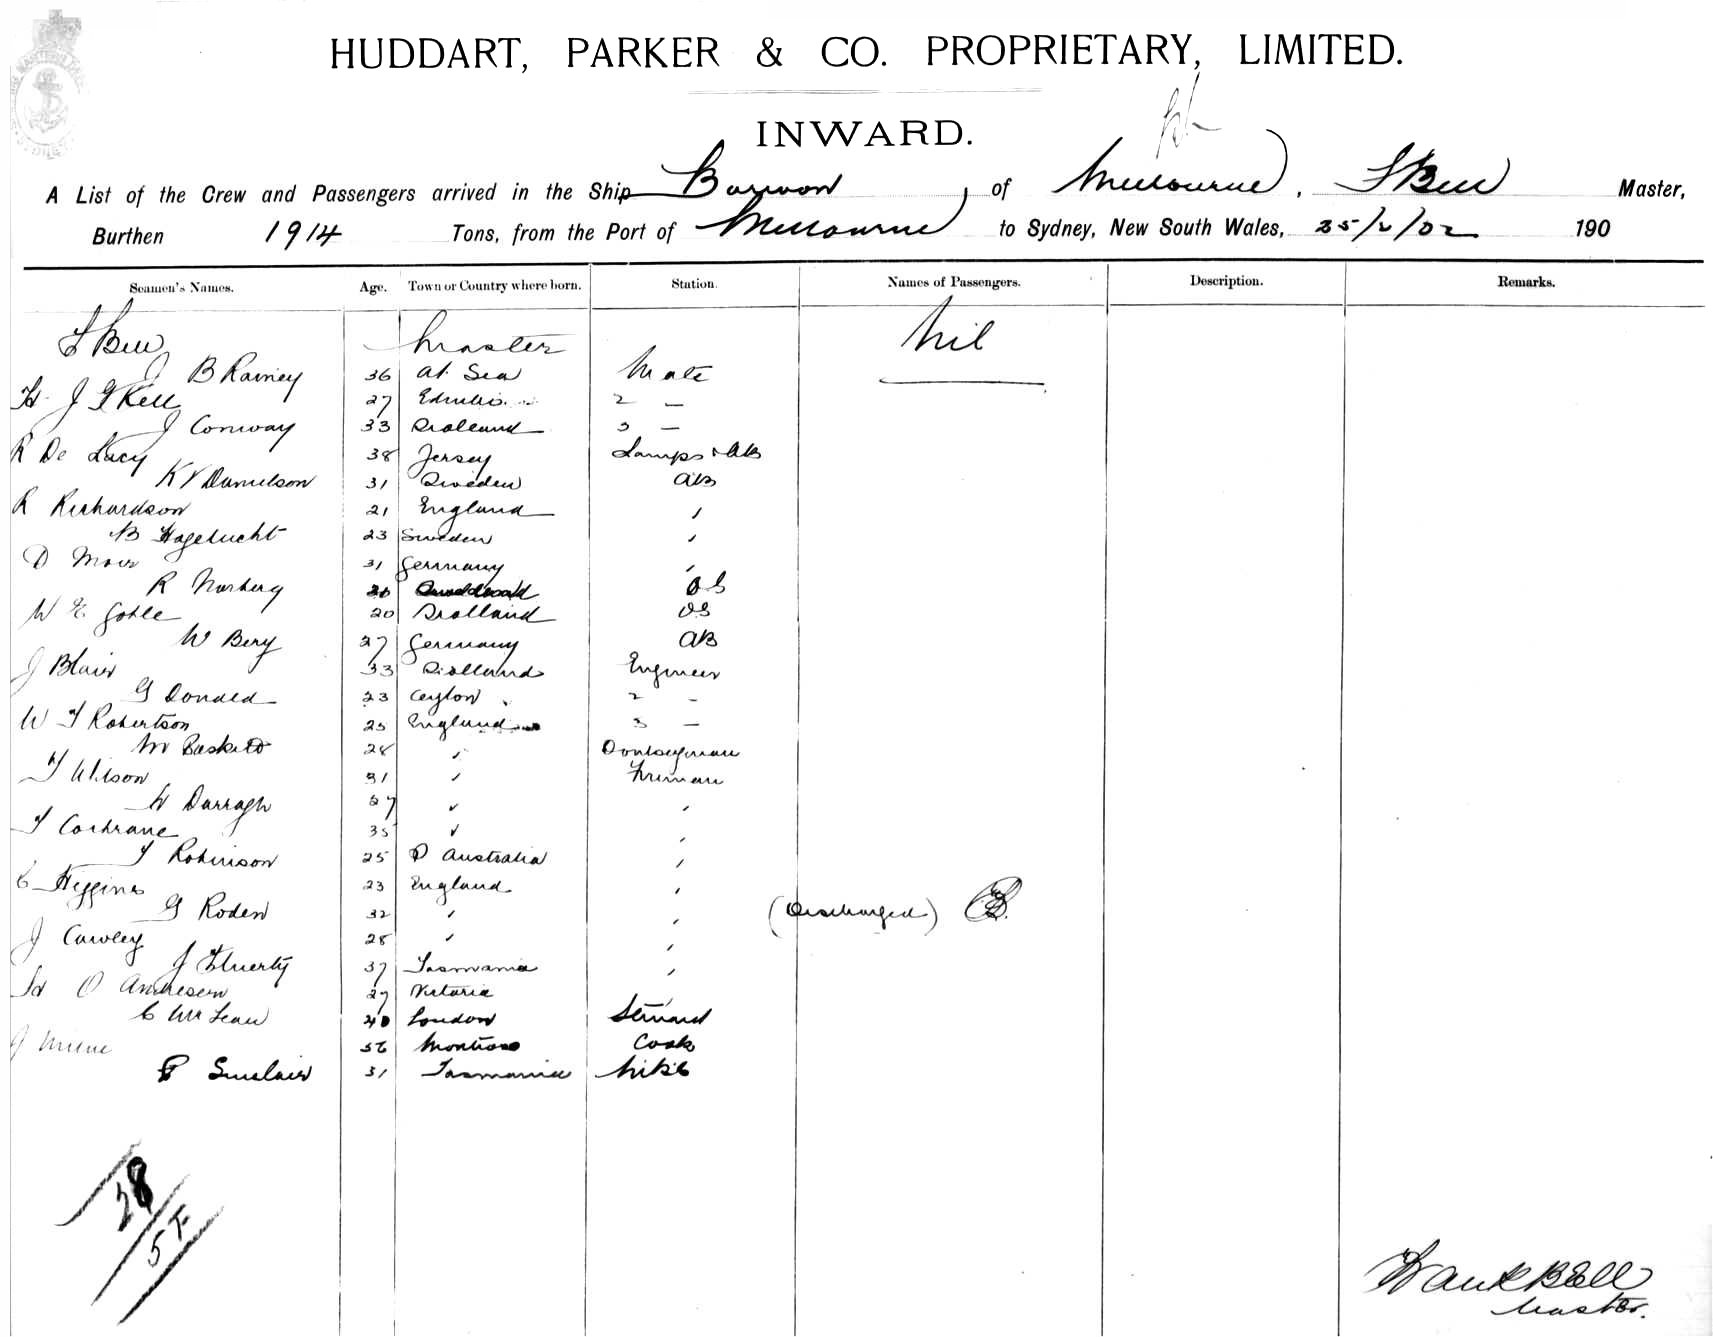 HUDDART, PARKER & CO. PROPRIETARY, LIMITED.
INWARD.
A List of the Crew and Passengers arrived in the Ship Barwon of Melbourne, F Bell Master,
Burthen 1914 Tons, from the Port of Melbourne to Sydney, New South Wales, 25/2/02 190
Seamen's Names. Age. Town or Country where born. Station. Names of Passengers. Description. Remarks.
F Bell Master Nil
J B Rainey 36 At Sea Mate
H J G Kell 27 2 —
J Conway 33 Scotland 3 —
R De Lucy 38 Jersey Lamps & AB
K V Danielson 31 Sweden AB
R Richardson 21 England "
B Hagelucht 23 Sweden "
D Moir 31 Germany "
R Norberg OS
W E Goble 20 Scotland OS
W Berg 27 Germany AB
J Blair 33 Scotland Engineer
G Donald 23 Ceylon 2 —
W T Robertson 25 England 3 —
M Baskett 28 " Donkeyman
T Wilson 31 " Fireman
W Darragh 27 " "
T Cochrane 35 " "
T Robinson 25 S Australia "
C Higgins 23 England "
G Roden 32 " " (Discharged)
J Cawley 28 " "
J Fluerty 37 Tasmania "
H O Andresen 27 Victoria "
C McLean 40 London Steward
J Milne 56 Montrose Cook
Sinclair 31 Tasmania
28
5F
Frank Bell
Master.